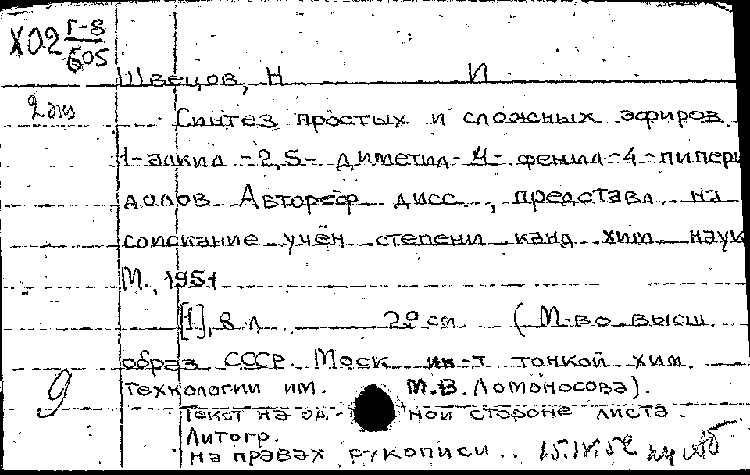 Х02 Г-8/605
Швецов, Н И
2 экз
Синтез простых и сложных эфиров
1-алкил-2,5-диметил-4-фенил-4-пипери
долов Автореф дисс., представл на
соискание учён степени канд хим наук
М., 1951
[1], 8 л 29 см (М-во высш.
образ СССР. Моск ин-т тонкой хим.
технологии им. М.В. Ломоносова).
9
Текст на од- ной стороне листа.
Литогр.
на правах рукописи.. 15.IV.52